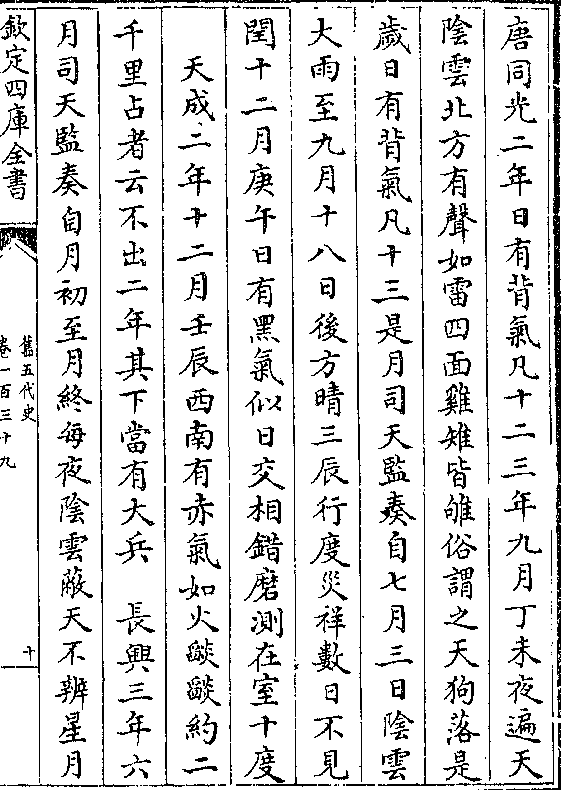 唐同光二年日有背氣凡十二三年九月丁未夜遍天
陰雲北方有聲如雷四面雞雉皆雊俗謂之天狗落是
歲日有背氣凡十三是月司天監奏自七月三日陰雲
大雨至九月十八日後方晴三辰行度災祥數日不見
閏十二月庚午日有黑氣似日交相錯磨測在室十度
天成二年十二月壬辰西南有赤氣如火燄燄約二
千里占者云不出二年其下當有大兵　長興三年六
月司天監奏自月初至月終每夜陰雲蔽天不辨星月
欽定四庫全書
舊五代史
卷一百三十九
十